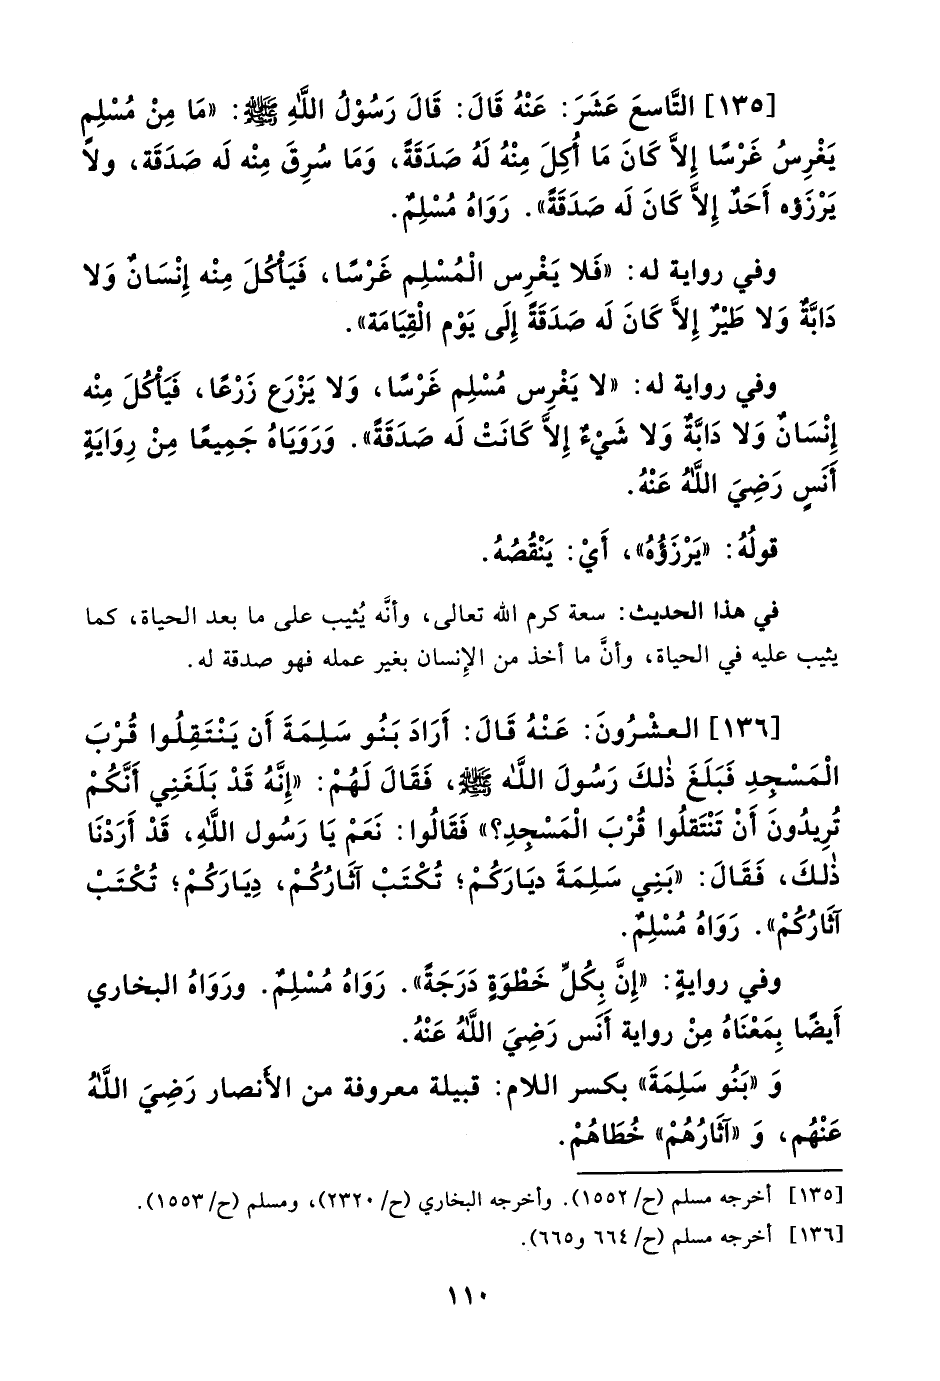 [١٣٥] التَّاسعَ عَشَرَ: عَنْهُ قَالَ: قَالَ رَسُوْلُ اللَّهِ ﷺ: «مَا مِنْ مُسْلِمٍ
يَغْرِسُ غَرْسًا إِلاَّ كَانَ مَا أُكِلَ مِنْهُ لَهُ صَدَقَةً، وَمَا سُرِقَ مِنْه لَه صَدَقَة، ولاَ
يَرْزَؤه أَحَدٌ إِلاَّ كَانَ لَه صَدَقَةً». رَوَاهُ مُسْلِمٌ.
وفي رواية له: «فَلا يَغْرِس الْمُسْلِم غَرْسًا، فَيَأْكُلَ مِنْه إِنْسَانٌ وَلا
دَابَّةٌ وَلا طَيْرٌ إِلاَّ كَانَ لَه صَدَقَةً إِلَى يَوْم الْقِيَامَة».
وفي رواية له: «لا يَغْرِس مُسْلِم غَرْسًا، وَلا يَزْرَع زَرْعًا، فَيَأْكُلَ مِنْه
إِنْسَانٌ وَلا دَابَّةٌ وَلا شَيْءٌ إِلاَّ كَانَتْ لَه صَدَقَةً». وَرَوَيَاهُ جَمِيعًا مِنْ رِوَايَةِ
أَنَسٍ رَضِيَ اللَّهُ عَنْهُ.
قولُهُ: «يَرْزَؤُهُ»، أَيْ: يَنْقُصُهُ.
في هذا الحديث: سعة كرم الله تعالى، وأنَّه يُثيب على ما بعد الحياة، كما
يثيب عليه في الحياة، وأنَّ ما أخذ من الإِنسان بغير عمله فهو صدقة له.
[١٣٦] العشْرُونَ: عَنْهُ قَالَ: أَرَادَ بَنُو سَلِمَةَ أَن يَنْتَقِلُوا قُرْبَ
الْمَسْجِدِ فَبَلَغَ ذٰلكَ رَسُولَ اللَّه ﷺ، فَقَالَ لَهُمْ: «إِنَّهُ قَدْ بَلَغَنِي أَنَّكُمْ
تُرِيدُونَ أَنْ تَنْتَقلُوا قُرْبَ الْمَسْجِدِ؟» فَقَالُوا: نَعَمْ يَا رَسُول اللَّهِ، قَدْ أَرَدْنَا
ذٰلكَ، فَقَالَ: «بَنِي سَلِمَةَ ديَارَكُمْ؛ تُكْتَبْ آثَارُكُمْ، دِيَارَكُمْ؛ تُكْتَبْ
آثَارُكُمْ». رَوَاهُ مُسْلِمٌ.
وفي روايةٍ: «إِنَّ بِكُلِّ خَطْوَةٍ دَرَجَةً». رَوَاهُ مُسْلِمٌ. ورَوَاهُ البخاري
أَيضًا بِمَعْنَاهُ مِنْ رواية أَنَس رَضِيَ اللَّهُ عَنْهُ.
وَ «بَنُو سَلِمَةَ» بكسر اللام: قبيلة معروفة من الأَنصار رَضِيَ اللَّهُ
عَنْهُم، وَ «آثَارُهُمْ» خُطَاهُمْ.
[١٣٥] أخرجه مسلم (ح/ ١٥٥٢). وأخرجه البخاري (ح/ ٢٣٢٠)، ومسلم (ح/ ١٥٥٣).
[١٣٦] أخرجه مسلم (ح/ ٦٦٤ و٦٦٥).
١١٠